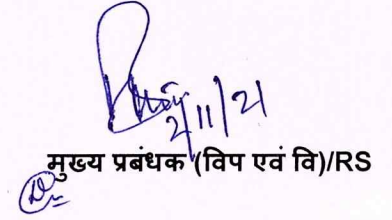 2/11/21
मुख्य प्रबंधक (विप एवं वि)/RS